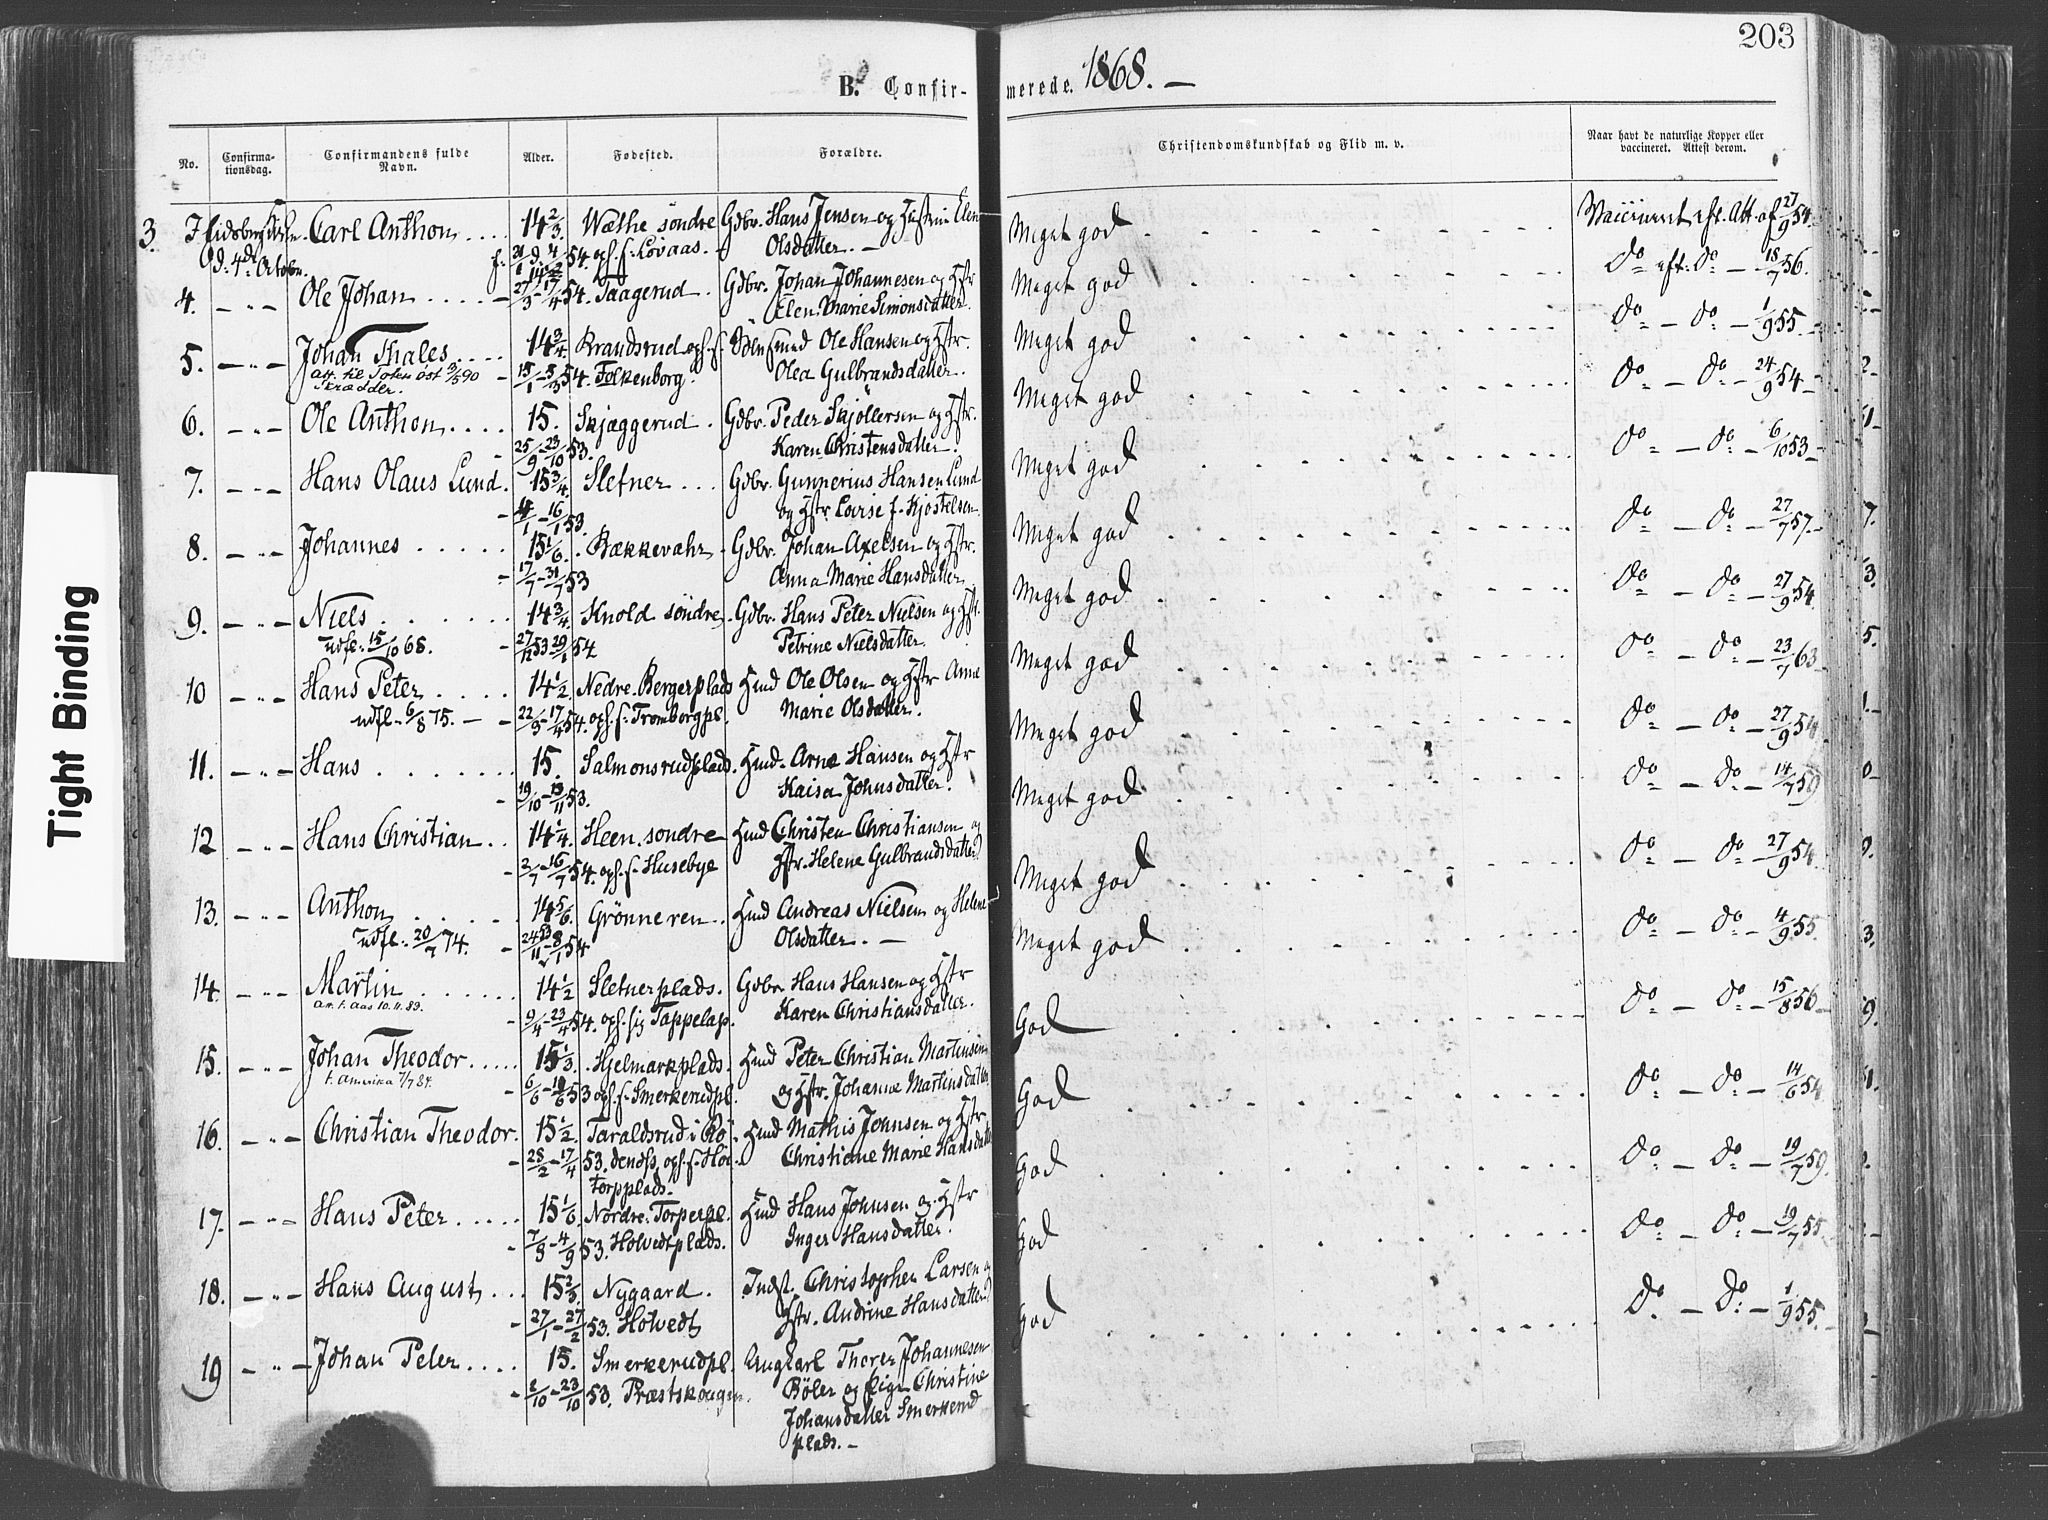 203
B. Confir-
merede. 1868. —
No.
Confirma-
tionsdag.
Confirmandens fulde
Navn.
Alder.
Fødested.
Forældre.
Christendomskundskab og Flid m. v.
Naar havt de naturlige Kopper eller
vaccineret. Attest derom.
3. Carl Anthon 14 2/3 Wæthe søndre Gdbr. Hans Jensen og Hustru Elen Meget god Vaccineret eft. Att. af 27/9 54.
d. 4de October. 54. ops. f. Løvaas. Olsdatter. —
4. — " — Ole Johan 14 1/2 Taagerud. Gdbr. Johan Johannesen og Hstr Meget god Do eft: Do — 18/7 56.
27/3 - 17/4 54. Elen Marie Simonsdatter.
5. — " — Johan Thales 14 3/4 Brandsrud ops. f. Ole Hansen og Hstr. Meget god Do — Do — 1/9 55.
att. til Toten øst 3/5 90 54. Folkenborg. Olea Gulbrandsdatter.
Skrædder.
6. — " — Ole Anthon 15. Skjæggerud. Gdbr. Peder Skjøllersen og Hstr. Meget god Do — Do — 24/9 54
25/9 - 23/10 53. Karen Christensdatter.
7. — " — Hans Olaus Lund. 15 3/4. Sletner Gdbr. Gunnerius Hansen Lund Meget god Do — Do — 6/10 53
16/1 53. og Hstr Lovise f. Kjøstelsen
8. — " — Johannes 15 1/6. Bækkevahr. Gdbr. Johan Axelsen og Hstr. Meget god Do — Do — 27/7 57.
17/7 - 31/7 53 Anna Marie Hansdatter
9. — " — Niels 14 3/4 Knold søndre. Gdbr. Hans Peter Nielsen og Hstr. Meget god Do — Do — 27/9 54.
udfl. 15/10 68. 27/12 53 29/1 54 Petrine Nielsdatter.
10 — " — Hans Peter 14 1/2 Nedre Bergerplads Hmd Ole Olsen og Hstr Anne Meget god Do — Do — 23/7 63
udfl. 6/8 75. — 22/3 - 17/4 54. ops. f. Tromborgpl. Marie Olsdatter.
11. — " — Hans 15. Salmonsrudplads. Hmd. Arne Hansen og Hstr Meget god Do — Do — 27/9 54
19/10 - 13/11 53. Kaisa Johnsdatter.
12 — " — Hans Christian 14 1/4. Heen søndre Hmd Christen Christiansen og Meget god Do — Do — 14/7 59
2/7 - 16/7 54. ops. f. Husebye Hstr. Helene Gulbrandsdatter
13. — " — Anthon 14 5/6. Grønneren Hmd Andreas Nielsen og Helene Meget god Do — Do — 27/9 54
udfl. 20/7 74. 8/1 54 Olsdatter. —
14. — " — Martin 14 1/2 Sletnerplads. Gdbr Hans Hansen og Hstr Meget god Do — Do — 4/9 55.
att. t. Aas 10.11.83. 9/4 - 23/4 54. Karen Christiansdatter.
15. — " — Johan Theodor 15 1/3. Hjelmarkplads. Hmd Peter Christian Martinsen God Do — Do — 15/8 56
t. Amerika 7/7 84. 53 ops. f. Smerkerudpl. og Hstr. Johanne Martinsdatter
16. — " — Christian Theodor. 15 1/2. Taraldsrud i Hmd Mathis Johnsen og Hstr God Do — Do — 14/6 54
17/4 53. ops. f. Christiane Marie Hansdatter
torpplads.
17. — " — Hans Peter 15 1/6 Nordre Torperpl. Hmd Hans Johnsen og Hstr God Do — Do — 19/7 59.
4/9 53. Holvedtplads. Inger Hansdatter.
18. — " — Hans August 15 2/3. Nygaard. Indst. Christopher Larsen og God Do — Do — 19/7 55
27/1 - 27/2 53. Holvedt Hstr. Andrine Hansdatter
19 — " — Johan Peter 15. Smerkerudpl. Ungkarl Thorer Johannesen God Do — Do — 1/9 55.
2/10 - 23/10 53. Præstskougen Bøler og Pige Christine
Johansdatter Smerkerud
plads. —
Tight Binding